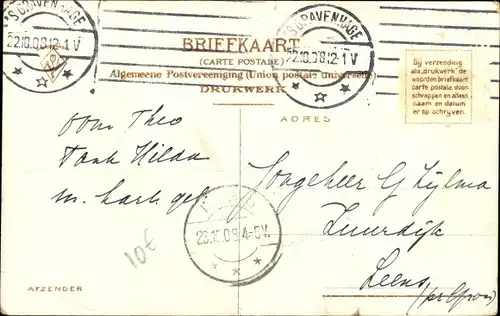 'S GRAVENHAGE
22.10.08 12-1 V
'S GRAVENHAGE
22.10.08 12-1 V
BRIEFKAART
(CARTE POSTALE)
Algemeene Postvereeniging (Union postale universelle)
DRUKWERK
Bij verzending
als „drukwerk" de
woorden briefkaart
carte postale door-
schrappen en alleen
naam en datum
er op schrijven.
ADRES
Oom Theo
Tante Hilda
m. hart. gef.
Jongeheer G Zijlma
Zuurdijk
Leens
23.10.08 4-5 V.
10€
AFZENDER